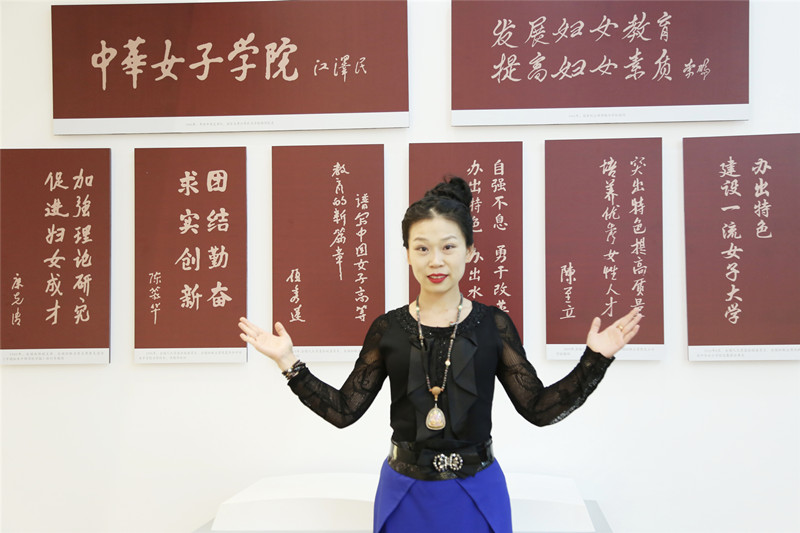 中華女子学院 江澤民
发展妇女教育
提高妇女素质 李鹏
加強理论研究
促进妇女成才
康克清
团结勤奋
求实创新
陈慕华
谱写中国女子高等
教育的新篇章
顾秀莲
自强不息 勇于改
办出特色 办出水
突出特色提高质量
培养优秀女性人才
陈至立
办出特色
建设一流女子大学